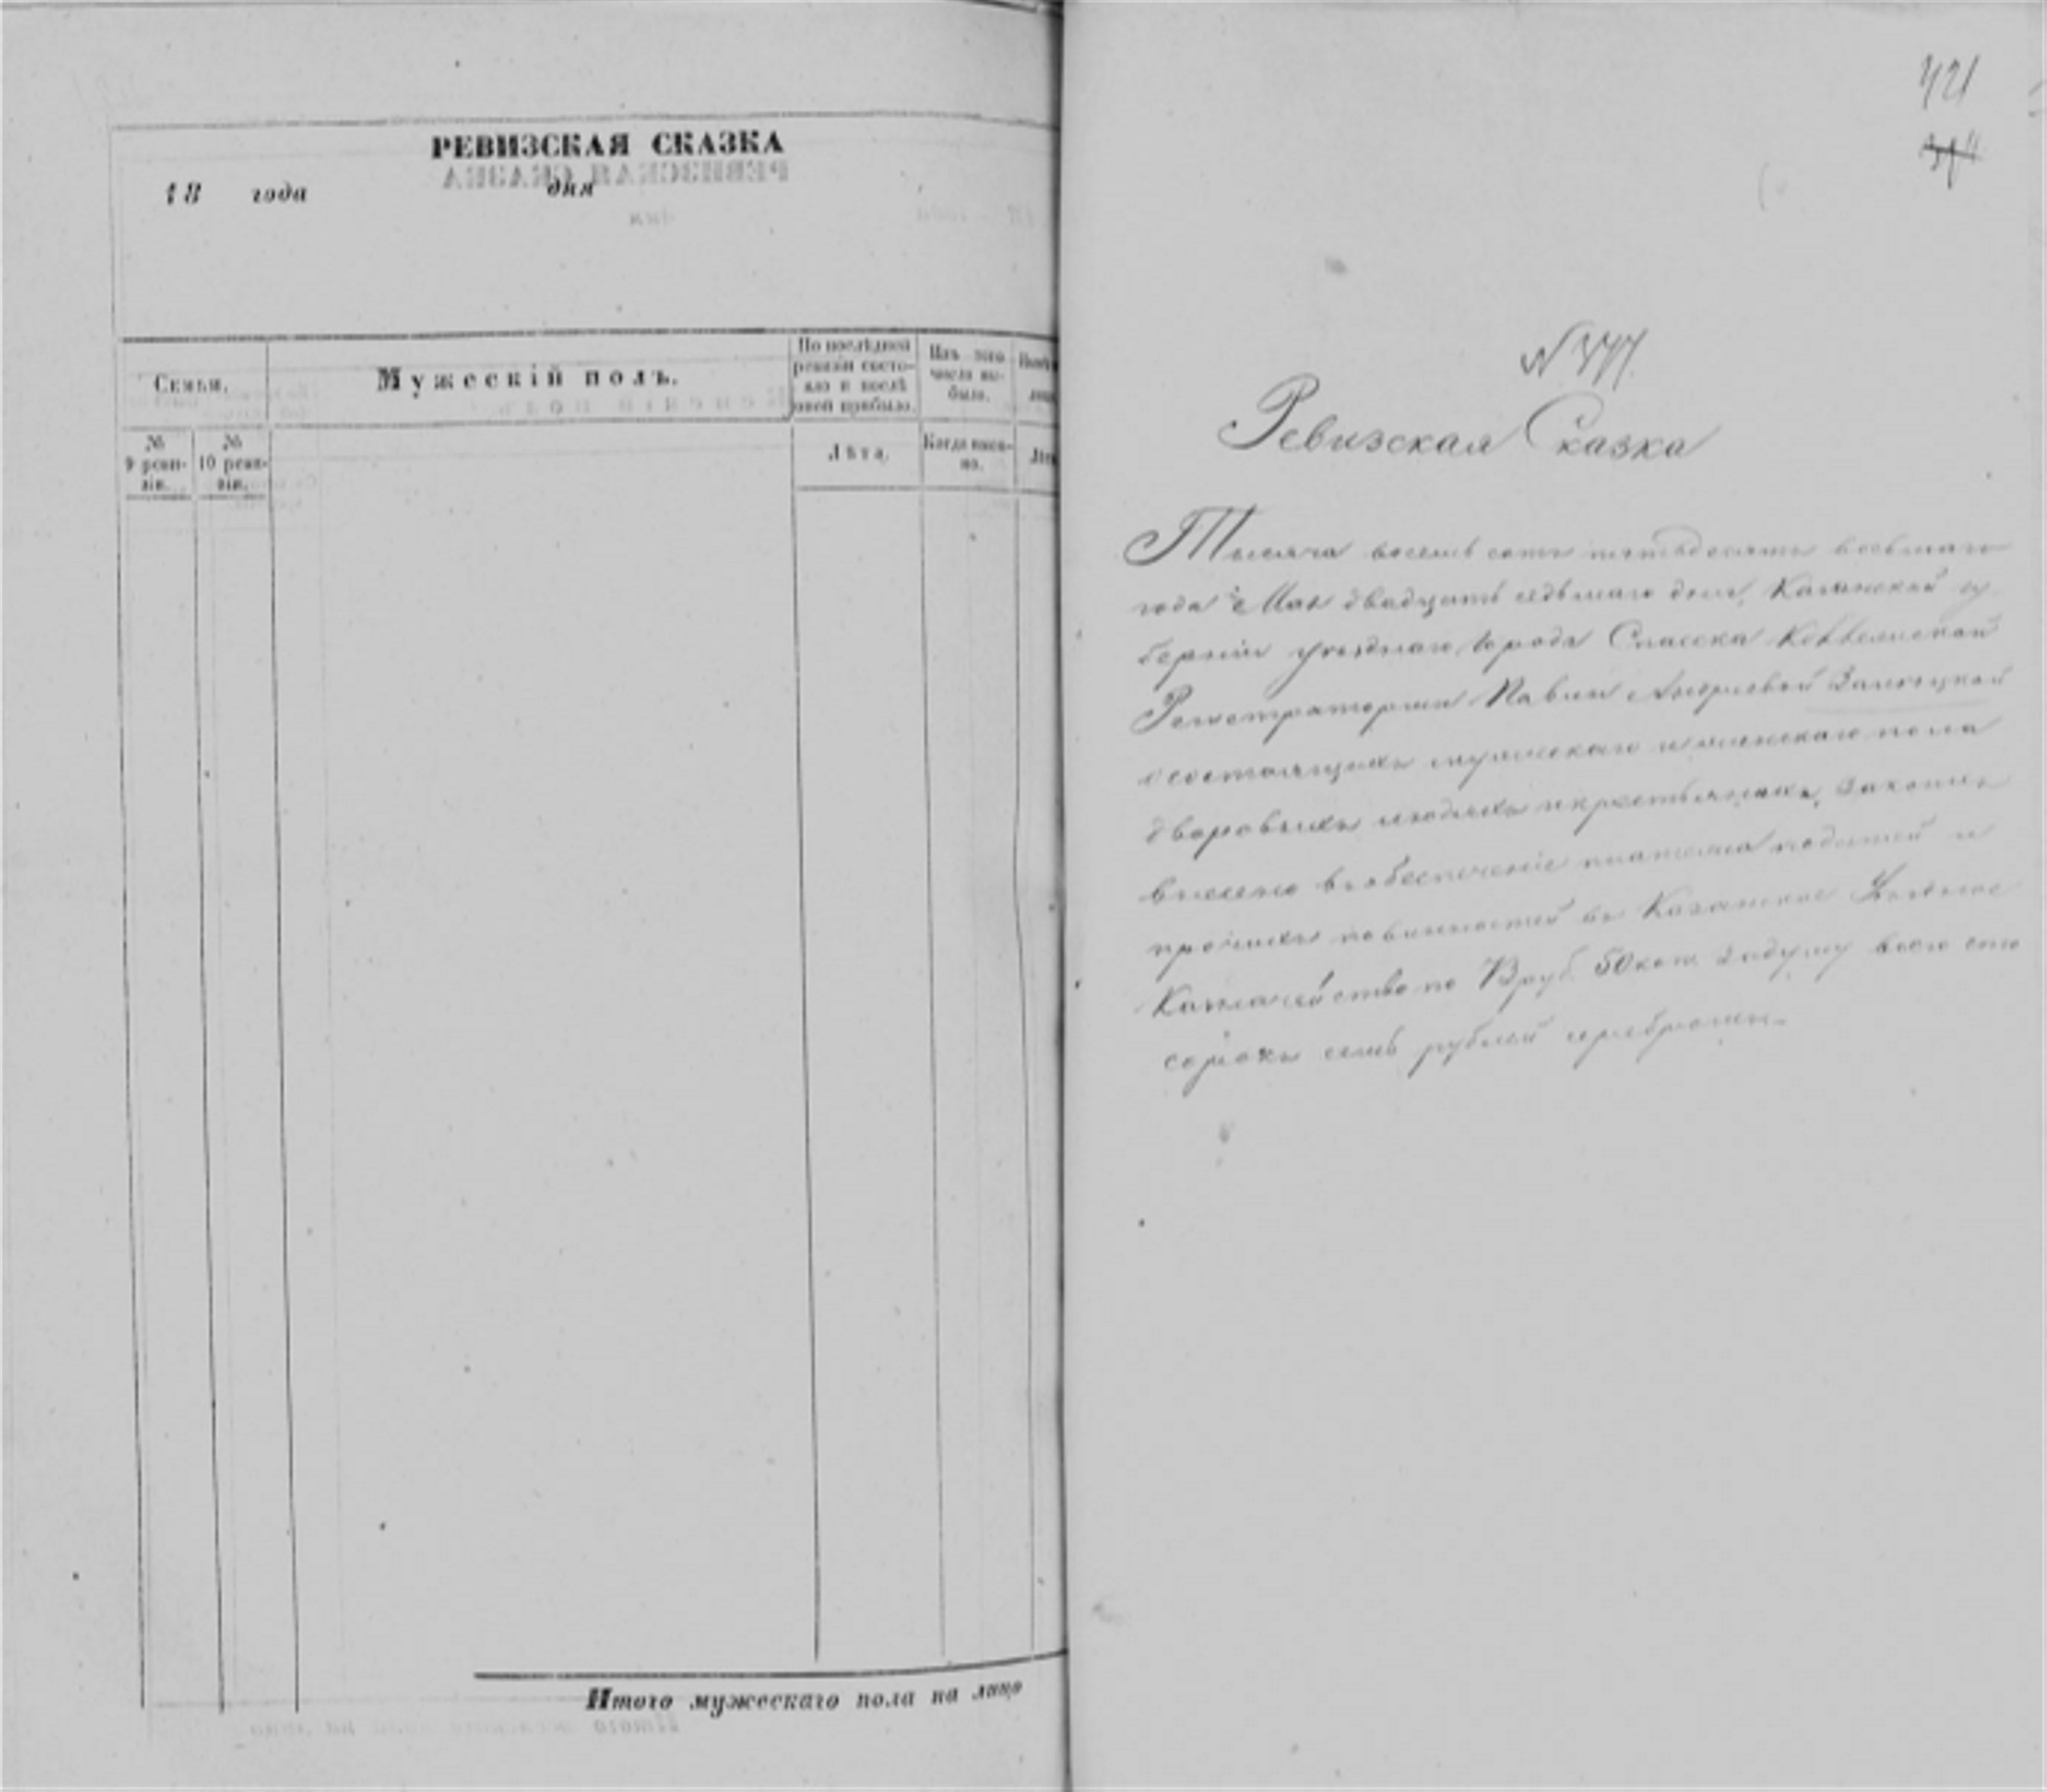 РЕВИЗСКАЯ СКАЗКА
18 года дня
Семьи.
Мужескій полъ.
По послѣдней
ревизіи состо-
яло и послѣ
оной прибыло.
Изъ того
числа вы-
было.
№
9 реви-
зіи.
№
10 реви-
зіи.
Лѣта.
Когда имен-
но.
Итого мужескаго пола на лицо
421
Ревизская Сказка
Тысяча восемь сотъ пятьдесятъ восьмаго
года Мая двадцать седьмаго дня, Казанской гу
берніи уѣзднаго города Спасска Коллежской
Регистраторши Андреевой
о состоящихъ мужескаго и женскаго пола
дворовыхъ людяхъ и крестьянахъ, за коихъ
внесено въ обеспеченіе платежа податей и
прочихъ повинностей въ Казанское Уѣздное
Казначейство по руб. 50 коп. за душу всего сто
сорокъ семь рублей серебромъ.